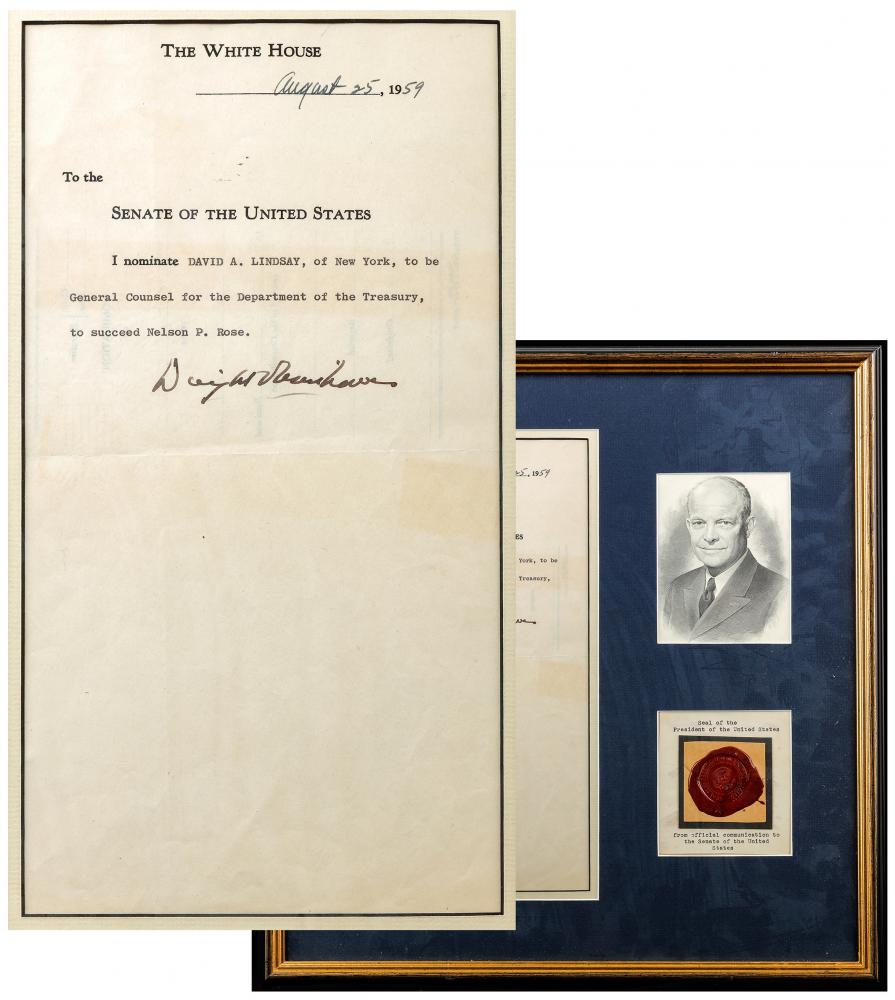 THE WHITE HOUSE
August 25, 1959
To the
SENATE OF THE UNITED STATES
I nominate DAVID A. LINDSAY, of New York, to be
General Counsel for the Department of the Treasury,
to succeed Nelson P. Rose.
Dwight D Eisenhower
25, 1959
ES
York, to be
Treasury,
Seal of the
President of the United States
from official communication to
the Senate of the United
States